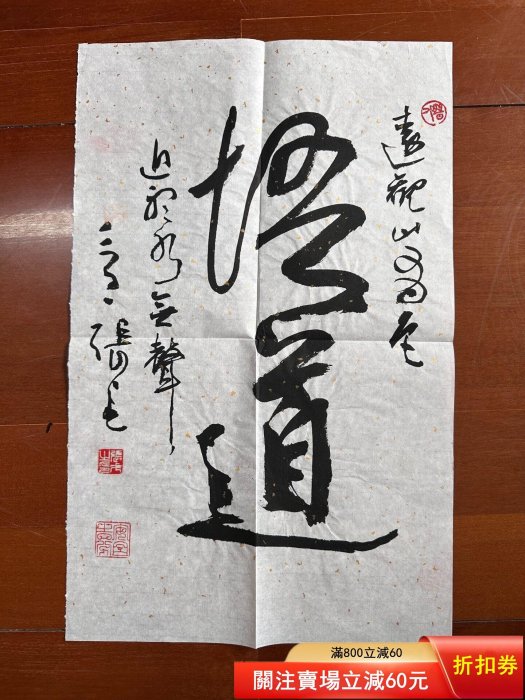 遠觀山有色
悟道
近聽水無聲
滿800立減60
關注賣場立減60元
折扣券